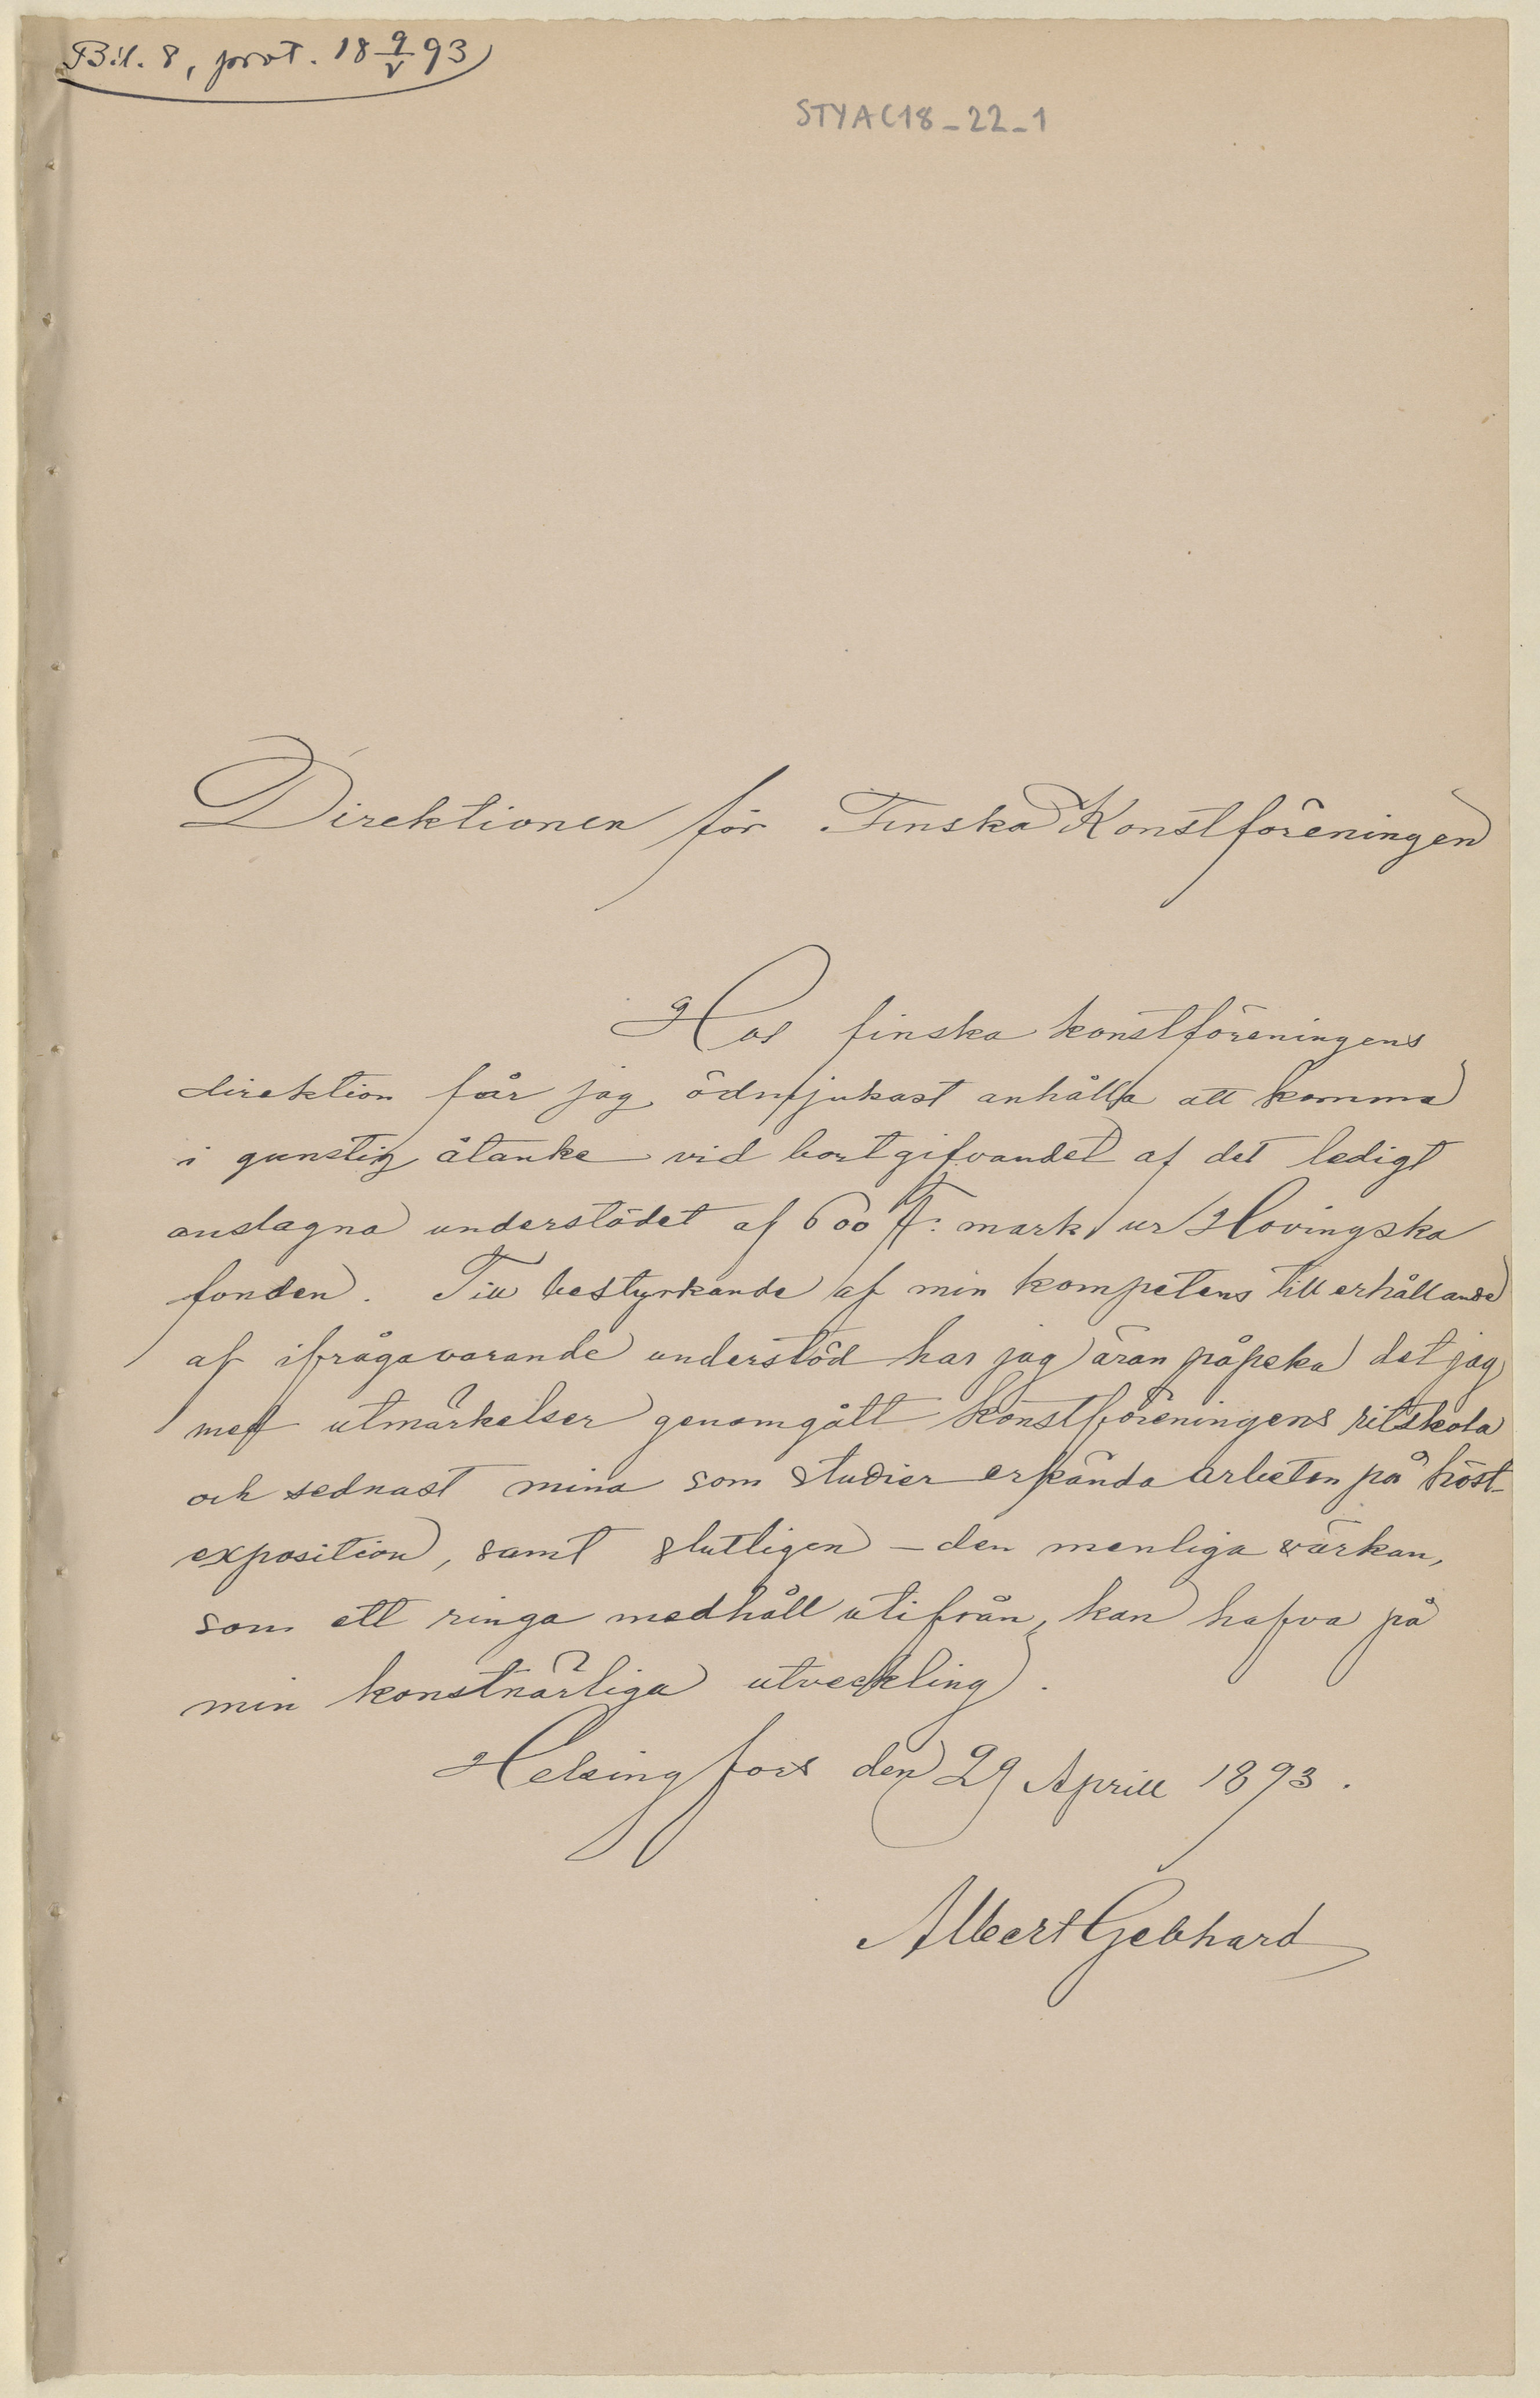 Bil. 8, prot. 18 9/V 93
STYAC18_22_1
Direktionen för Finska Konstföreningen
Hos finska konstföreningens
direktion får jag ödmjukast anhålla att komma
i gunstig åtanke vid bortgifvandet af det ledigt
anslagna understödet af 600 F: mark ur Hovingska
fonden. Till bestyrkande af min kompetens till erhållande
af ifrågavarande understöd har jag äran påpeka det jag
med utmärkelser genomgått konstföreningens ritskola
och sednast mina som studier erkända arbeten på höst-
exposition, samt slutligen – den menliga värkan,
som ett ringa medhåll utifrån, kan hafva på
min konstnärliga utveckling.
Helsingfors den 29 Aprill 1893.
Albert Gebhard